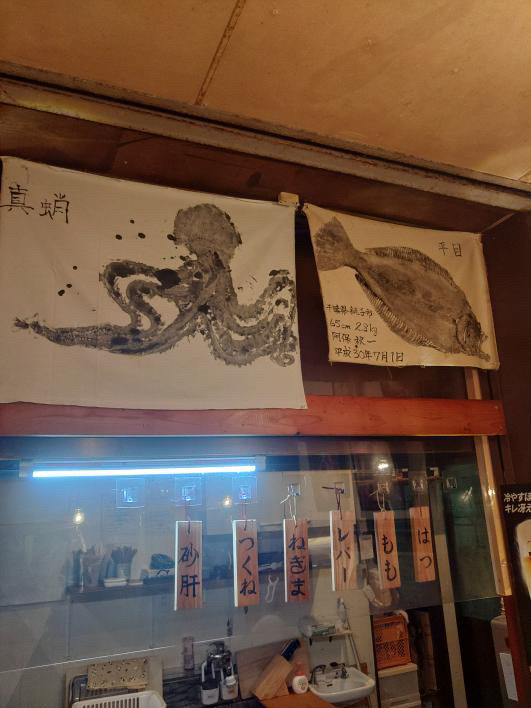 真蛸
平目
千葉県銚子沖
65cm 2.8kg
平成30年7月1日
砂肝
つくね
ねぎま
レバー
もも
はつ
冷やすほ
キレ冴え